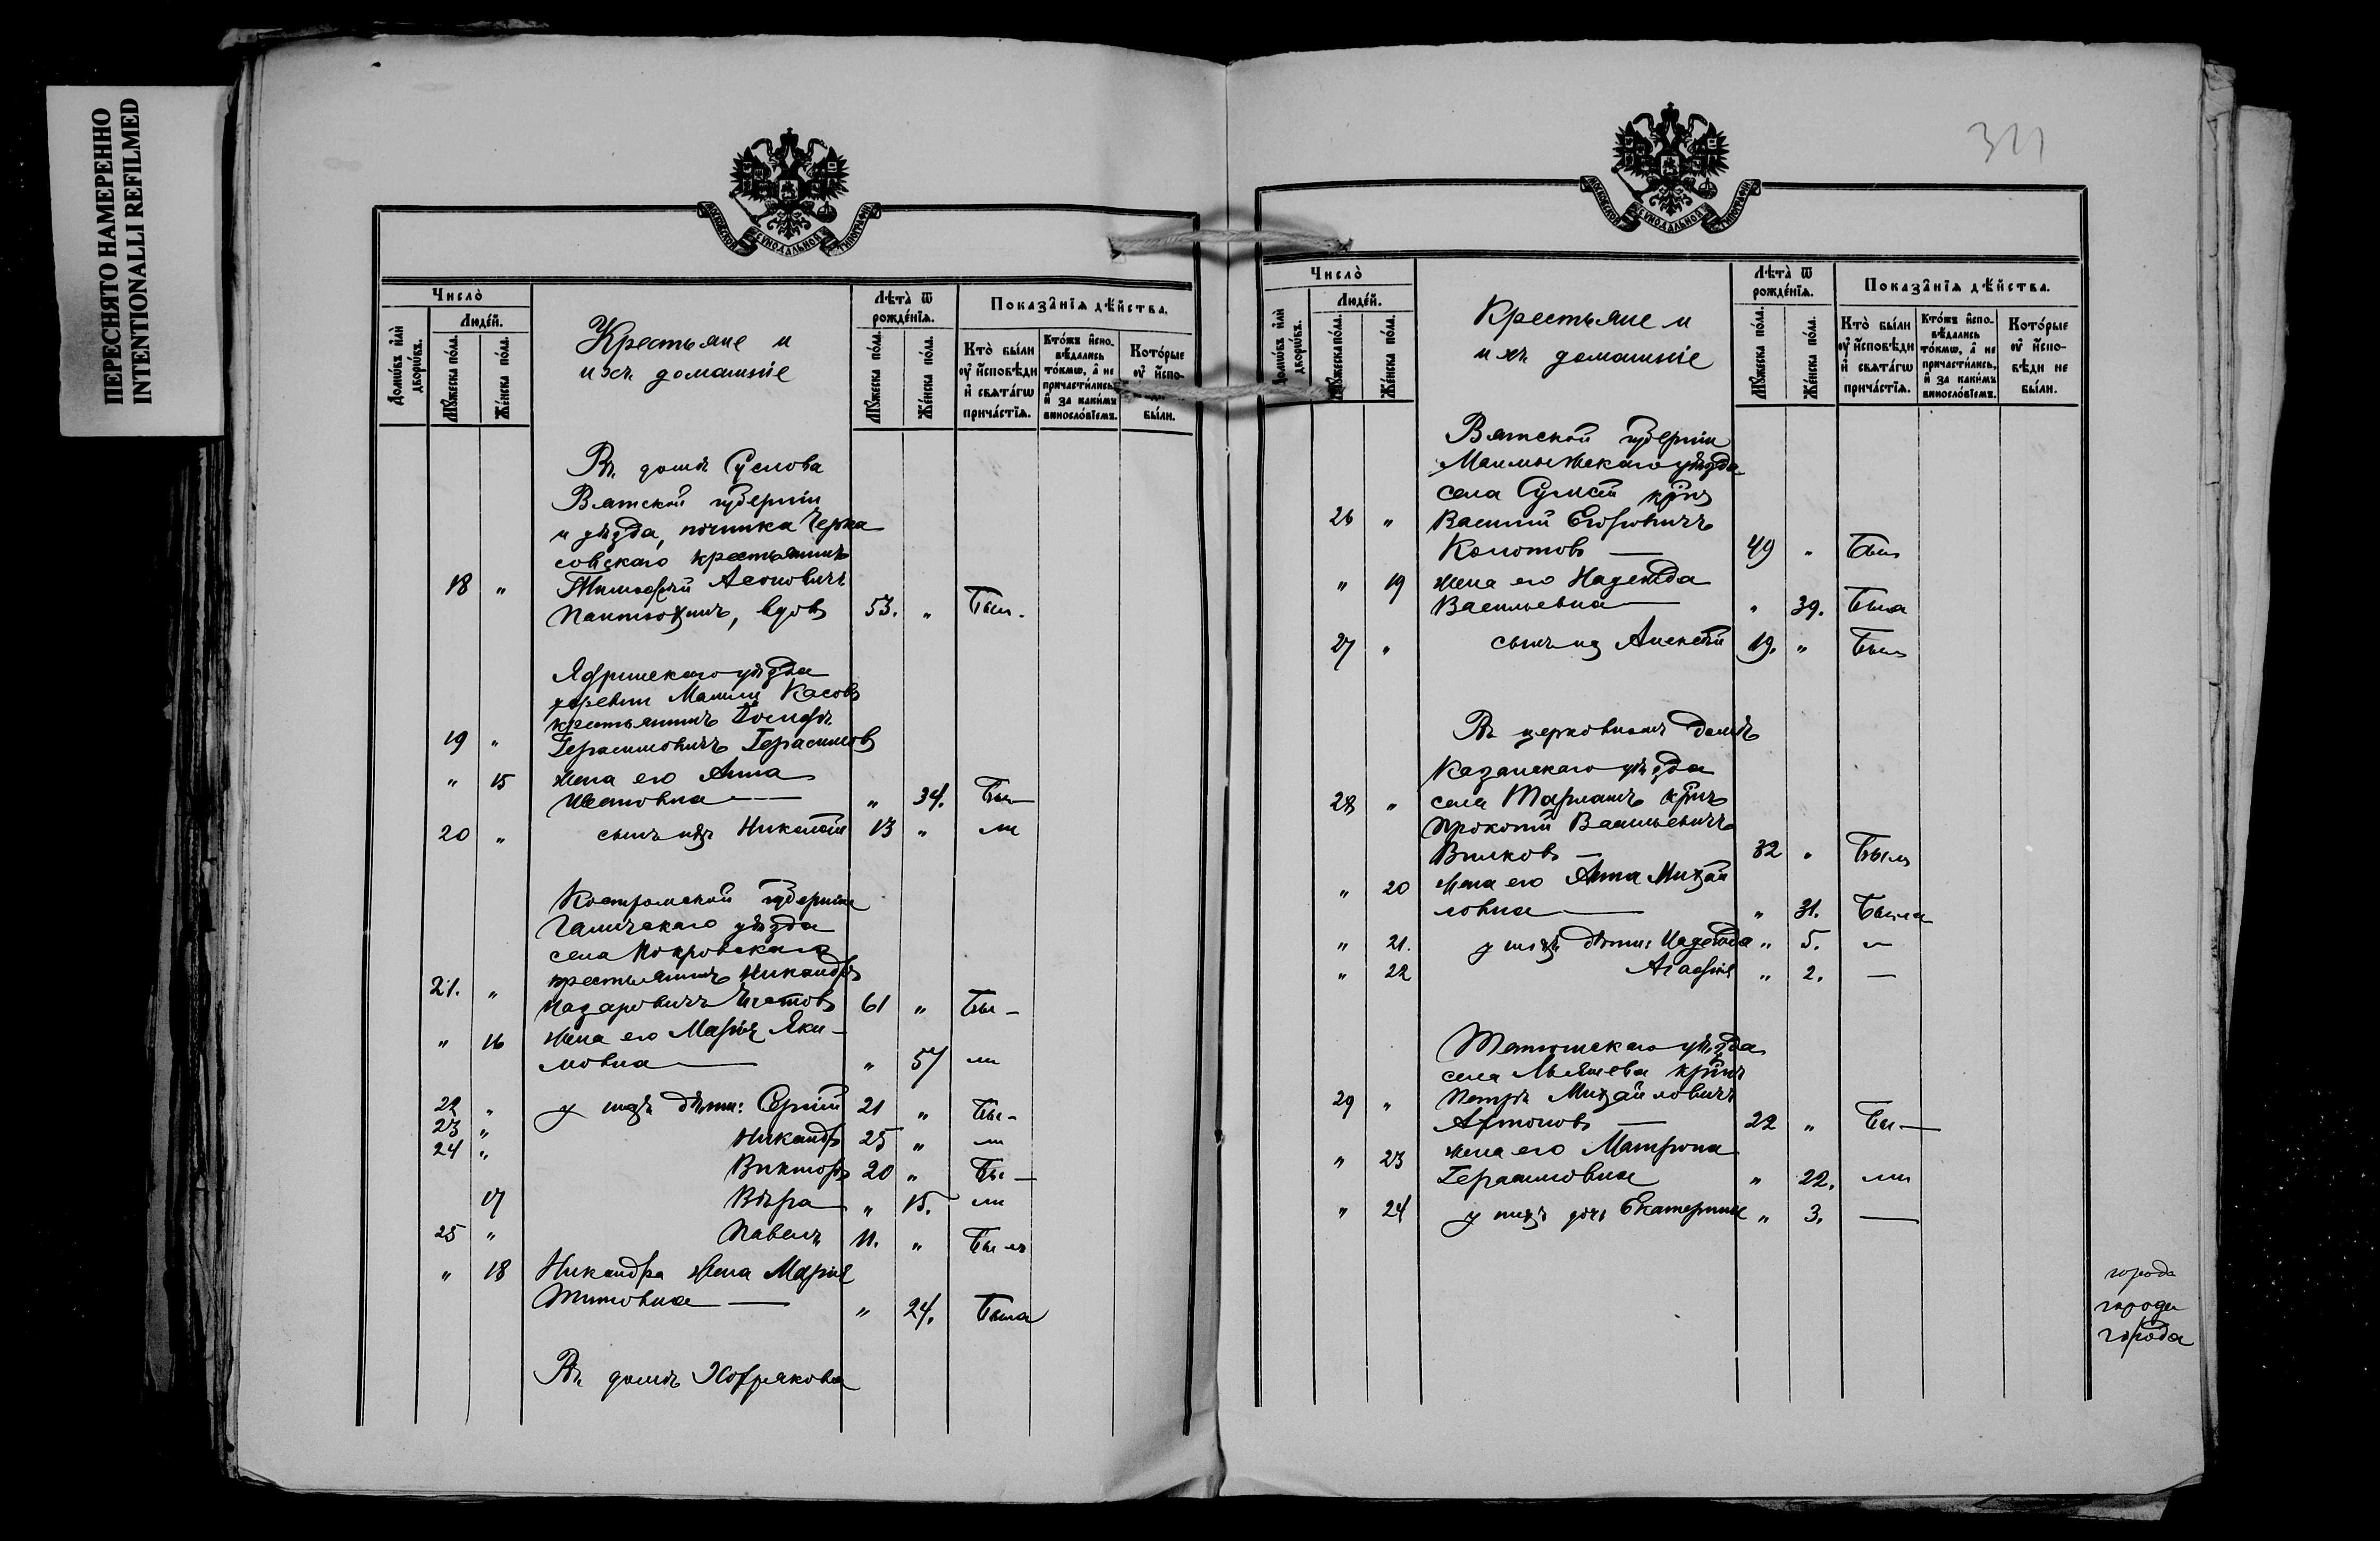 ПЕРЕСНЯТО НАМЕРЕННО
INTENTIONALLI REFILMED
МОСКОВСКОЙ СУНОДАЛЬНОЙ ТИПОГРАФІИ
Число̀
Домѡ́въ и҆лѝ дворѡ́въ.
Люде́й.
Мꙋ́жеска по́ла.
Же́нска по́ла.
Крестьяне и
ихъ домашніе
Лѣта̀ ѿ рожде́нїѧ.
Мꙋ́жеска по́ла.
Же́нска по́ла.
Показа̑нїѧ дѣ́йства.
Кто̀ бы́ли ᲂу҆ и҆́сповѣди и҆ свѧта́гѡ прича́стїѧ.
Кто́жъ и҆сповѣ́дались то́кмѡ, а҆ не причасти́лись, и҆ за каки́мъ виносло́вїемъ.
Кото́рые ᲂу҆ и҆́спо- бы́ли.
Въ домѣ Суслова
Вятской губерніи
и уѣзда, починка Черка
совскаго крестьянинъ
18 " Тимофей
Пантюхинъ, вдовъ 53. " Был.
Ядринскаго уѣзда
деревни Малыхъ Касовъ
крестьянинъ Іосифъ
19 " Герасимовичъ Герасимовъ
" 15 жена его Анна
Ивановна — " 34. Бы—
20 " сынъ ихъ Николай 13 " ли
Костромской губерніи
Галичскаго уѣзда
села Покровскаго
крестьянинъ Никандръ
21. " Назаровичъ 61 " Бы –
" 16 жена его Марія Яки–
мовна — " 57 ли
22 " у нихъ дѣти: Сергій 21 " Бы–
23 " Никандръ 25 " ли
24 " Викторъ 20 " Бы —
17 Вѣра " 15. ли
25 " Павелъ 11. " Былъ
" 18 Никандра жена Марія
Титовна — " 24. Была
Въ домѣ Хохрякова
311
МОСКОВСКОЙ СУНОДАЛЬНОЙ ТИПОГРАФІИ
Число̀
Домѡ́въ и҆лѝ дворѡ́въ.
Люде́й.
Мꙋ́жеска по́ла.
Же́нска по́ла.
Крестьяне и
ихъ домашніе
Лѣта̀ ѿ рожде́нїѧ.
Мꙋ́жеска по́ла.
Же́нска по́ла.
Показа̑нїѧ дѣ́йства.
Кто̀ бы́ли ᲂу҆ и҆́сповѣди и҆ свѧта́гѡ прича́стїѧ.
Кто́жъ и҆сповѣ́дались то́кмѡ, а҆ не причасти́лись, и҆ за каки́мъ виносло́вїемъ.
Кото́рые ᲂу҆ и҆́сповѣди не бы́ли.
Вятской губерніи
Малмыжскаго уѣзда
села Сумсей крнъ
26 " Василій Егоровичъ
Колотовъ — 49 " Былъ
" 19 жена его Надежда
Васильевна — " 39. Была
27 " сынъ ихъ Алексѣй 19. " Былъ
Въ церковномъ домѣ
Казанскаго уѣзда
28 " села Тарлашъ крнъ
Прокопій Васильевичъ
Вилковъ – 32 " Былъ
" 20 жена его Анна Михай
ловна — " 31. Была
" 21. у нихъ дѣти: Надежда " 5. –
" 22 Агафія " 2. —
Тетюшскаго уѣзда
села крнъ
29 " Петръ Михайловичъ
Артоновъ — 22 " Бы —
" 23 жена его Матрона
Герасимовна " 22. ли
" 24 у нихъ дочь Екатерина " 3. —
города
города
города